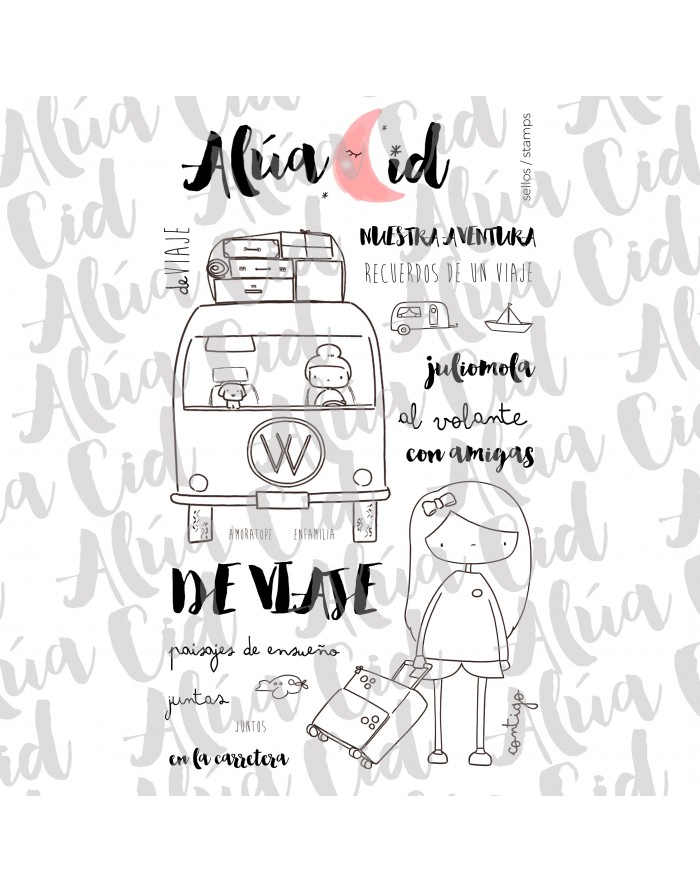 Alúa Cid
sellos / stamps
de VIAJE
NUESTRA AVENTURA
RECUERDOS DE UN VIAJE
juliomola
al volante
con amigas
W
AMORATOPE ENFAMILIA
DE VIAJE
paisajes de ensueño
juntas
JUNTOS
en la carretera
contigo